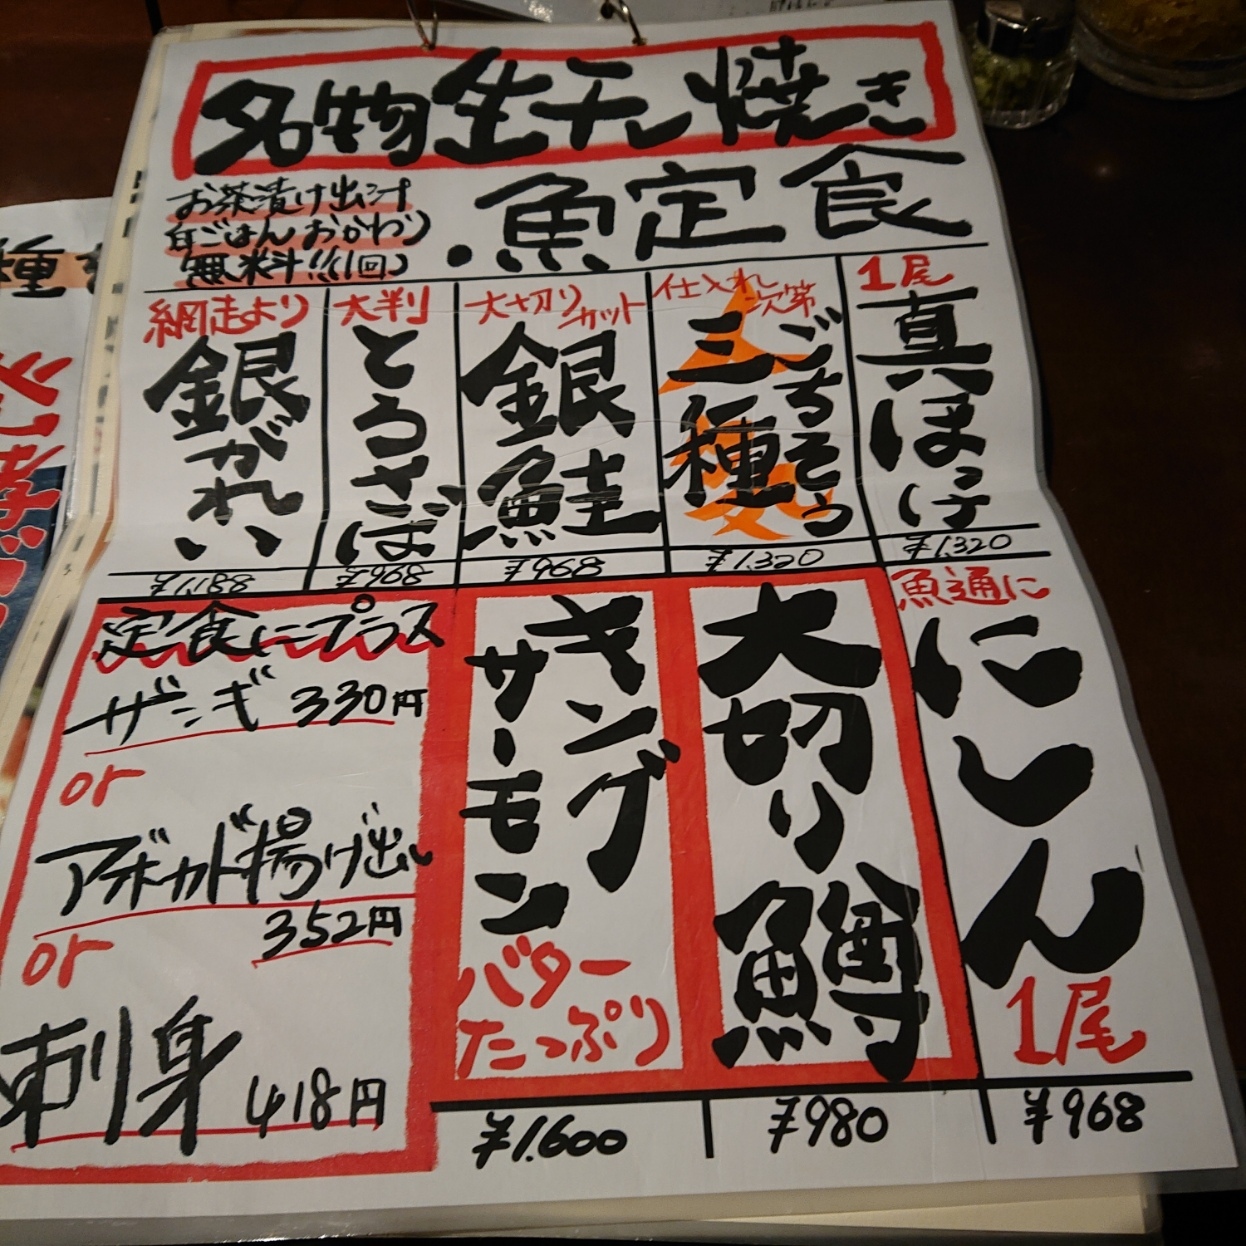 名物生干し焼き
・魚定食
お茶漬け出汁
白ごはんおかわり
無料!!(1回)
1尾
真ほっけ
¥1,320
仕入れ次第
ごちそう
三種
¥1,320
大切りカット
銀鮭
¥968
大判
とろさば
¥968
網走より
銀がれい
¥1,188
魚通に
にしん
1尾
¥968
大切り鱒
¥980
キング
サーモン
バター
たっぷり
¥1.600
定食にプラス
ザンギ 330円
or
アボカド揚げ出し
352円
or
刺身 418円
種